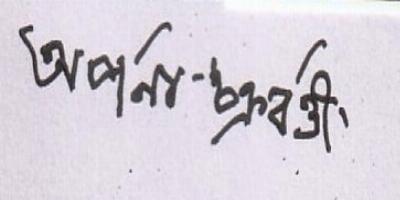 অপর্না চক্রবর্ত্তী